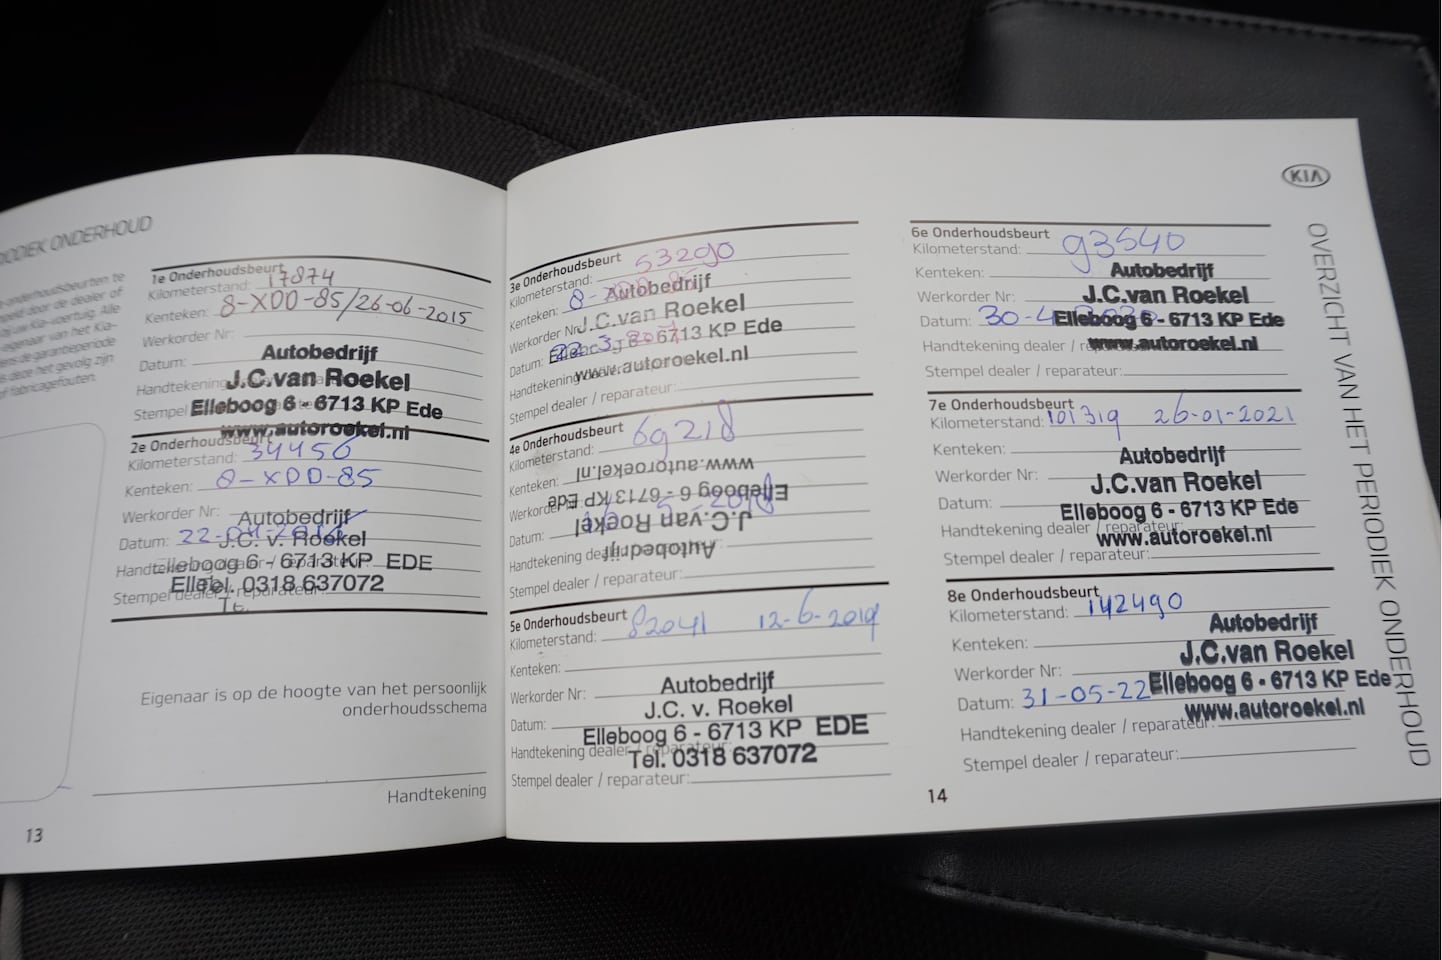 ODIEK ONDERHOUD
1e Onderhoudsbeurt
Kilometerstand: 17874
Kenteken: 8-XDD-85/26-06-2015
Werkorder Nr:
Datum:
Autobedrijf
Handtekening
J.C.van Roekel
Stempel
Elleboog 6 - 6713 KP Ede
www.autoroekel.nl
2e Onderhoudsbeurt
Kilometerstand: 34456
Kenteken: 8-XDD-85
Werkorder Nr:
Autobedrijf
Datum: 22-04-
J.C. v. Roekel
Elleboog 6 - 6713 KP EDE
Stempel dealer / reparateur:
Tel. 0318 637072
Eigenaar is op de hoogte van het persoonlijk
onderhoudsschema
Handtekening
13
3e Onderhoudsbeurt
Kilometerstand: 53290
Kenteken: 8-
Autobedrijf
Werkorder Nr
J.C.van Roekel
Datum:
6713 KP Ede
www.autoroekel.nl
Stempel dealer / reparateur:
4e Onderhoudsbeurt
Kilometerstand: 69218
Kenteken:
www.autoroekel.nl
Elleboog 6 - 6713 KP Ede
Datum:
J.C.van Roekel
Autobedrijf
Stempel dealer / reparateur:
5e Onderhoudsbeurt
Kilometerstand: 82041 12-6-2019
Kenteken:
Werkorder Nr:
Autobedrijf
J.C. v. Roekel
Datum:
Elleboog 6 - 6713 KP EDE
Handtekening dealer / reparateur:
Tel. 0318 637072
Stempel dealer / reparateur:
KIA
6e Onderhoudsbeurt
Kilometerstand: 93540
Kenteken:
Autobedrijf
Werkorder Nr:
J.C.van Roekel
Datum: 30-4
Elleboog 6 - 6713 KP Ede
Handtekening dealer /
www.autoroekel.nl
Stempel dealer / reparateur:
7e Onderhoudsbeurt
Kilometerstand: 101319 26-01-2021
Kenteken:
Autobedrijf
Werkorder Nr:
J.C.van Roekel
Datum:
Elleboog 6 - 6713 KP Ede
Handtekening dealer / reparateur:
www.autoroekel.nl
Stempel dealer / reparateur:
8e Onderhoudsbeurt
Kilometerstand: 142490
Kenteken:
Autobedrijf
Werkorder Nr:
J.C.van Roekel
Datum: 31-05-22
Elleboog 6 - 6713 KP Ede
Handtekening dealer / reparateur:
www.autoroekel.nl
Stempel dealer / reparateur:
14
OVERZICHT VAN HET PERIODIEK ONDERHOUD